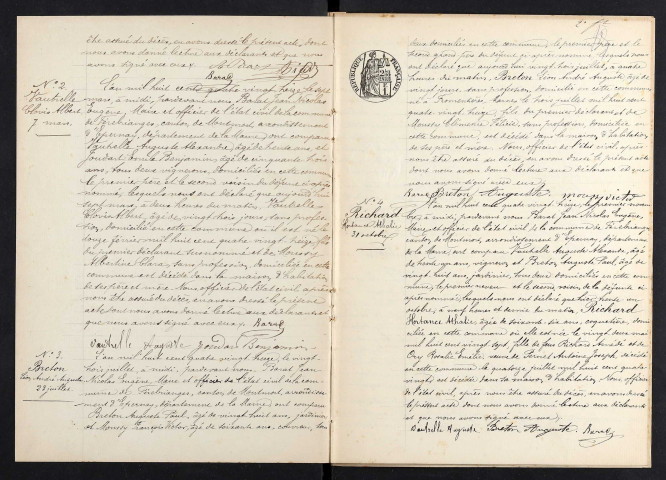 être assuré du décès, en avons dressé le présent acte, dont
nous avons donné lecture aux déclarants et que nous
avons signé avec eux.
Barat
N° 2.
Vautrelle
Clovis Albert
7 mars
L'an mil huit cent quatre vingt treize, le sept
mars, à midi, pardevant nous, Barat Jean Nicolas
Eugène, Maire et officier de l'état civil de la commune
de Fèrebrianges, canton de Montmort, arrondissement
d'Epernay, département de la Marne, ont comparu
Vautrelle Auguste Alexandre, âgé de trente ans, et
Joudart Benjamin, âgé de cinquante trois
ans, tous deux vignerons, domiciliés en cette commune
le premier père et le second voisin du défunt ci-après
nommé, lesquels nous ont déclaré que aujourd'hui
sept mars, à deux heures du matin, Vautrelle
Clovis Albert, âgé de vingt trois jours, sans profes
sion, domicilié en cette commune où il est né le
douze février mil huit cent quatre vingt treize, fils
du premier déclarant susnommé et de
Albertine Clara, sans profession, domiciliée en cette
commune est décédé dans la maison d'habitation
de ses père et mère. Nous officier de l'état civil, après
nous être assuré du décès, en avons dressé le présent
acte dont nous avons donné lecture aux déclarants et
que nous avons signé avec eux. Barat
Vautrelle Auguste Joudart Benjamin
N° 3.
Breton
Léon André Auguste
28 juillet
L'an mil huit cent quatre vingt treize, le vingt
huit juillet, à midi, pardevant nous, Barat Jean
Nicolas Eugène, Maire et officier de l'état civil de la com
mune de Fèrebrianges, canton de Montmort, arrondisse
ment d'Epernay, département de la Marne, ont comparu
Breton Auguste Paul, âgé de vingt huit ans, jardinier
et Moussy François Victor, âgé de soixante ans, couvreur, tous
RÉPUBLIQUE FRANÇAISE
deux domiciliés en cette commune, le premier père et le
second grand père du défunt ci-après nommé, lesquels nous
ont déclaré que aujourd'hui vingt huit juillet, à quatre
heures du matin, Breton Léon André Auguste, âgé de
vingt jours, sans profession, domicilié en cette commune
né à Fromentières, Marne, le huit juillet mil huit cent
quatre vingt treize, fils du premier déclarant et de
Moussy sans profession, domiciliée en
cette commune, est décédé dans la maison d'habitation
de ses père et mère. Nous officier de l'état civil, après
nous être assuré du décès, en avons dressé le présent acte
dont nous avons donné lecture aux déclarants et que
nous avons signé avec eux.
Barat Breton Auguste moussy victor
N° 4
Richard
Hortance Athalie
31 octobre
L'an mil huit cent quatre vingt treize, le premier novem
bre, à midi, pardevant nous Barat Jean Nicolas Eugène,
Maire et officier de l'état civil de la commune de Fèrebrianges,
canton de Montmort, arrondissement d'Epernay, département
de la Marne, ont comparu Vautrelle Auguste Alexandre, âgé
de trente ans, vigneron, et Breton Auguste Paul, âgé de
vingt huit ans, jardinier, tous deux domiciliés en cette com
mune, le premier neveu et le second voisin de la défunte ci-
après nommée, lesquels nous ont déclaré que hier, trente un
octobre, à heures et demie du matin, Richard
Hortance Athalie, âgée de soixante six ans, domi
ciliée en cette commune où elle est née, le vingt deux mai
mil huit cent vingt sept, fille de feu Richard et de
Ory Rosalie veuve de Antoine Joseph, décédé
en cette commune, le quatorze juillet mil huit cent quatre
vingt est décédée dans sa maison d'habitation. Nous officier
de l'état civil, après nous être assuré du décès, en avons dressé
le présent acte dont nous avons donné lecture aux déclarants
et que nous avons signé avec eux.
Vautrelle Auguste Breton Auguste Barat